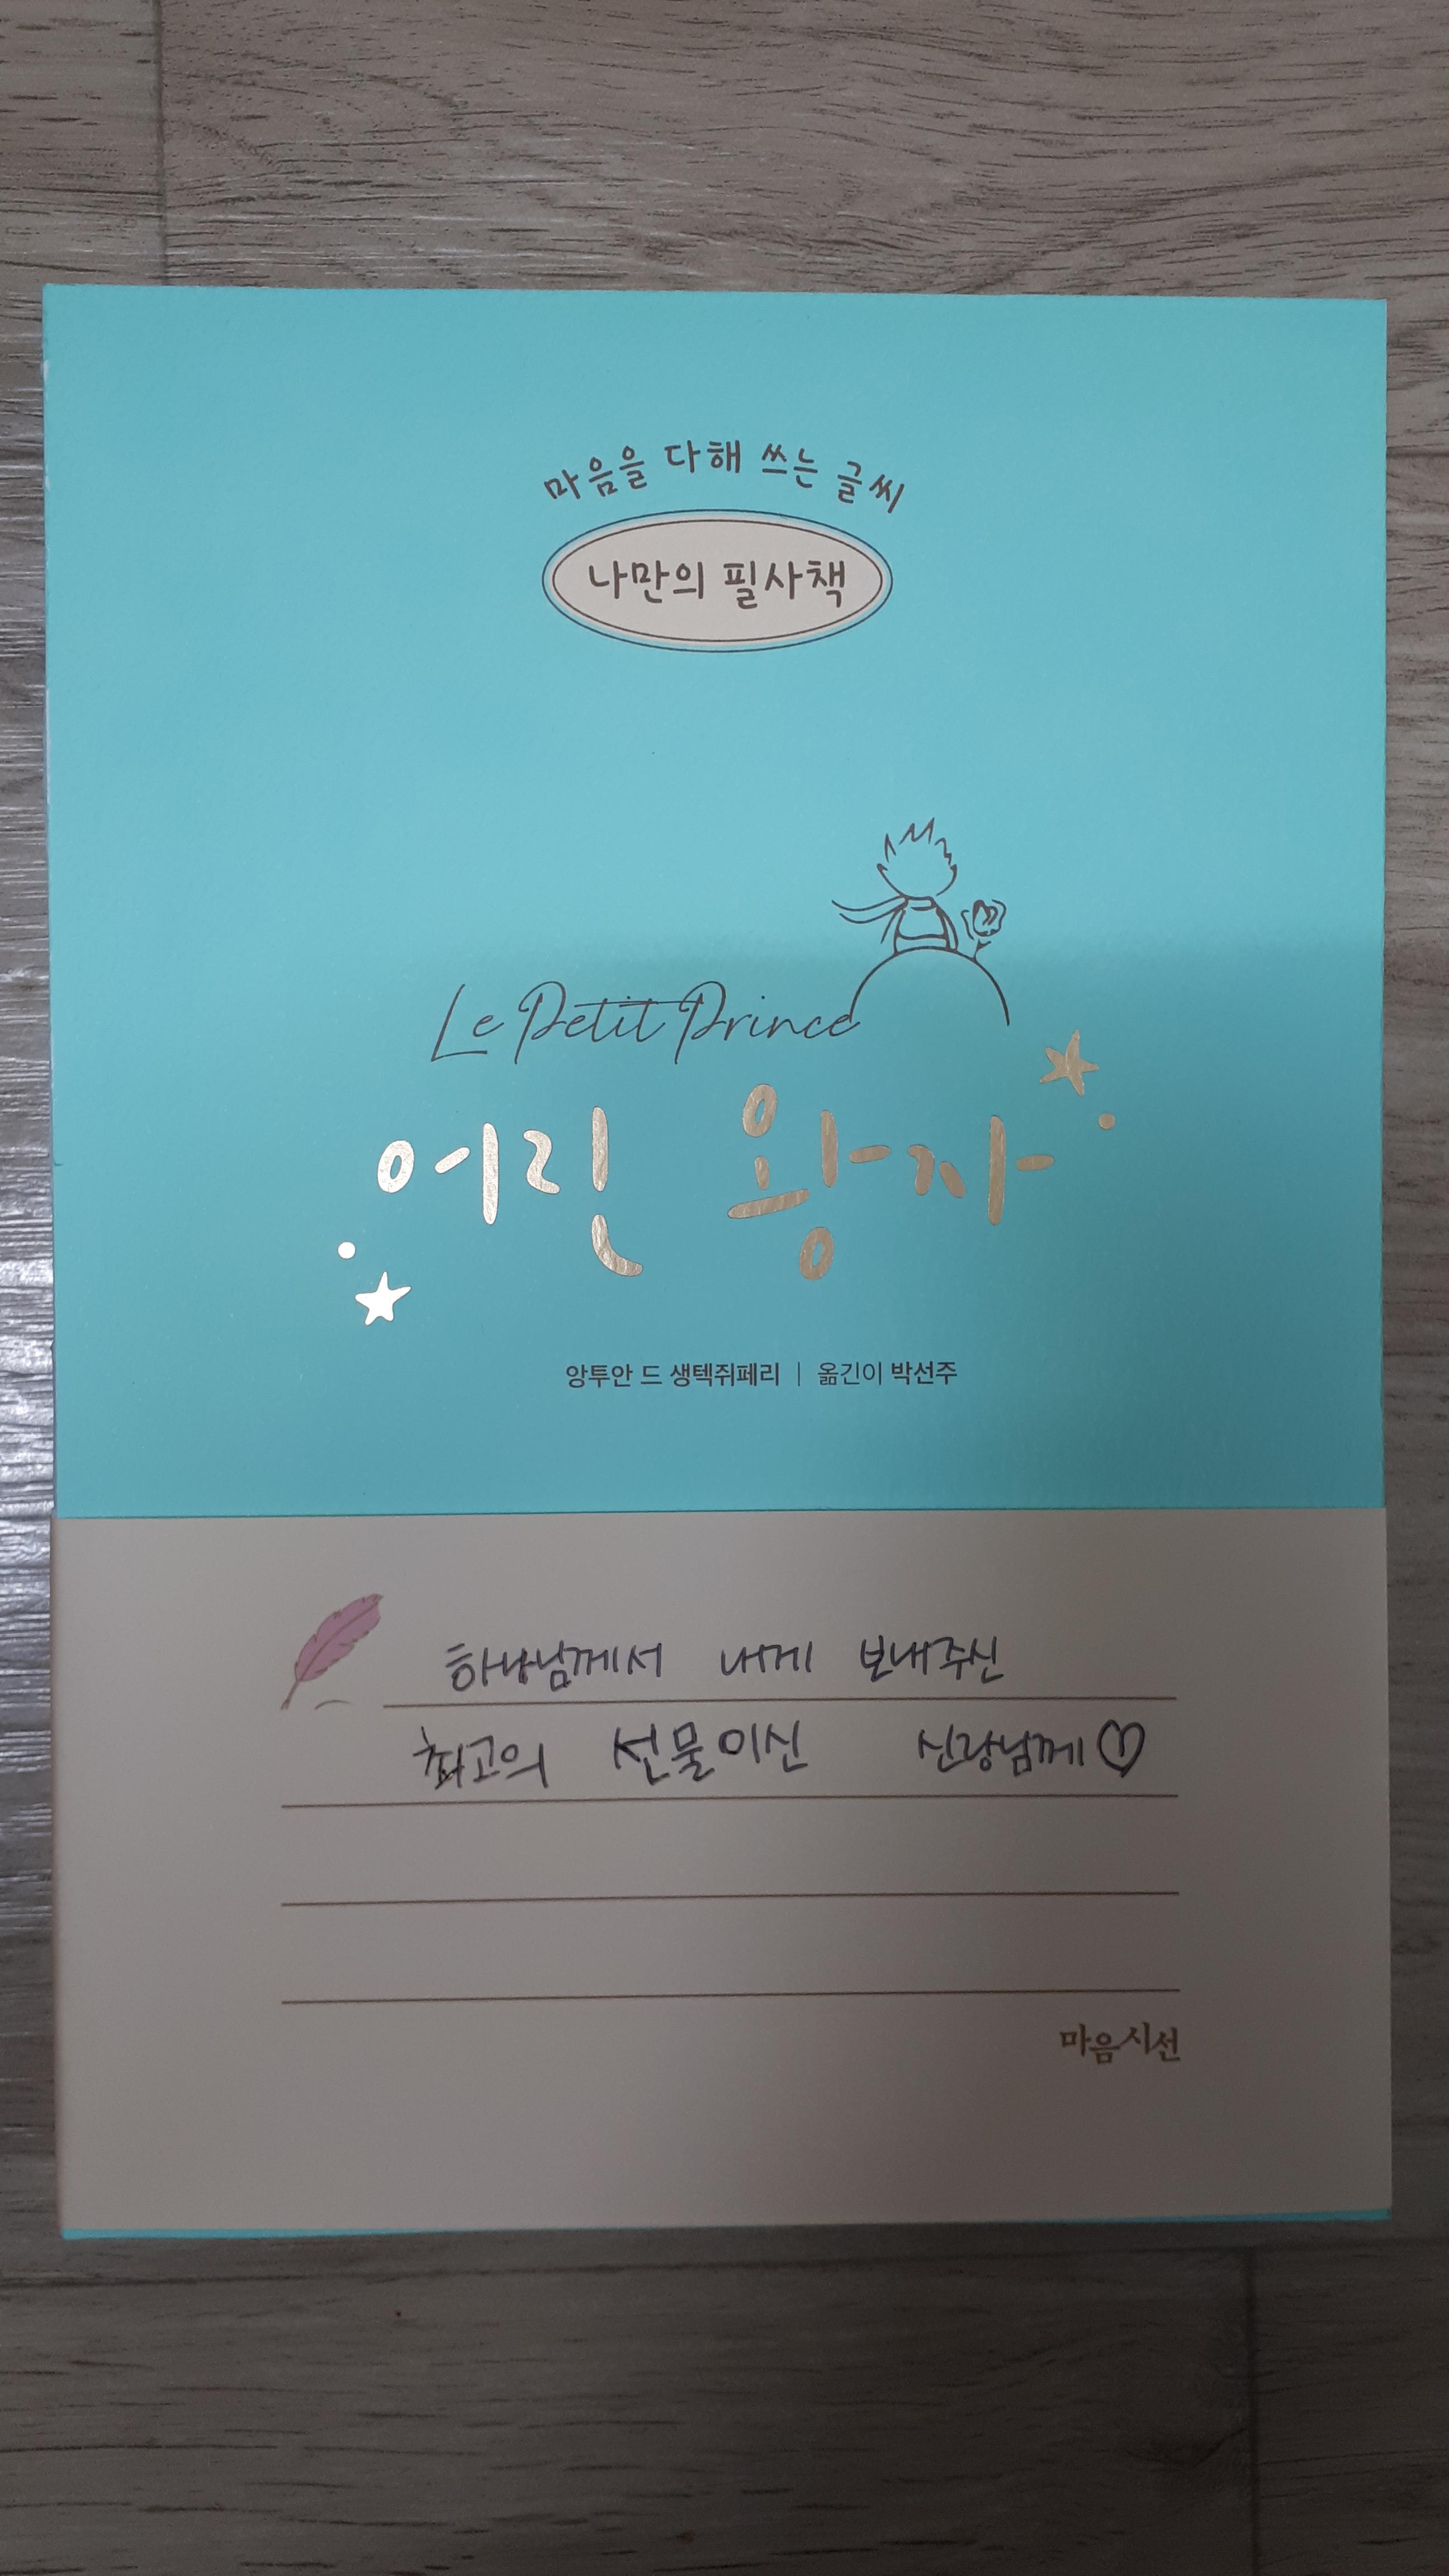 마음을 다해 쓰는 글씨
나만의 필사책
Le Petit Prince
어린 왕자
앙투안 드 생텍쥐페리 | 옮긴이 박선주
하나님께서 내게 보내주신
최고의 선물이신 신랑님께♡
마음시선